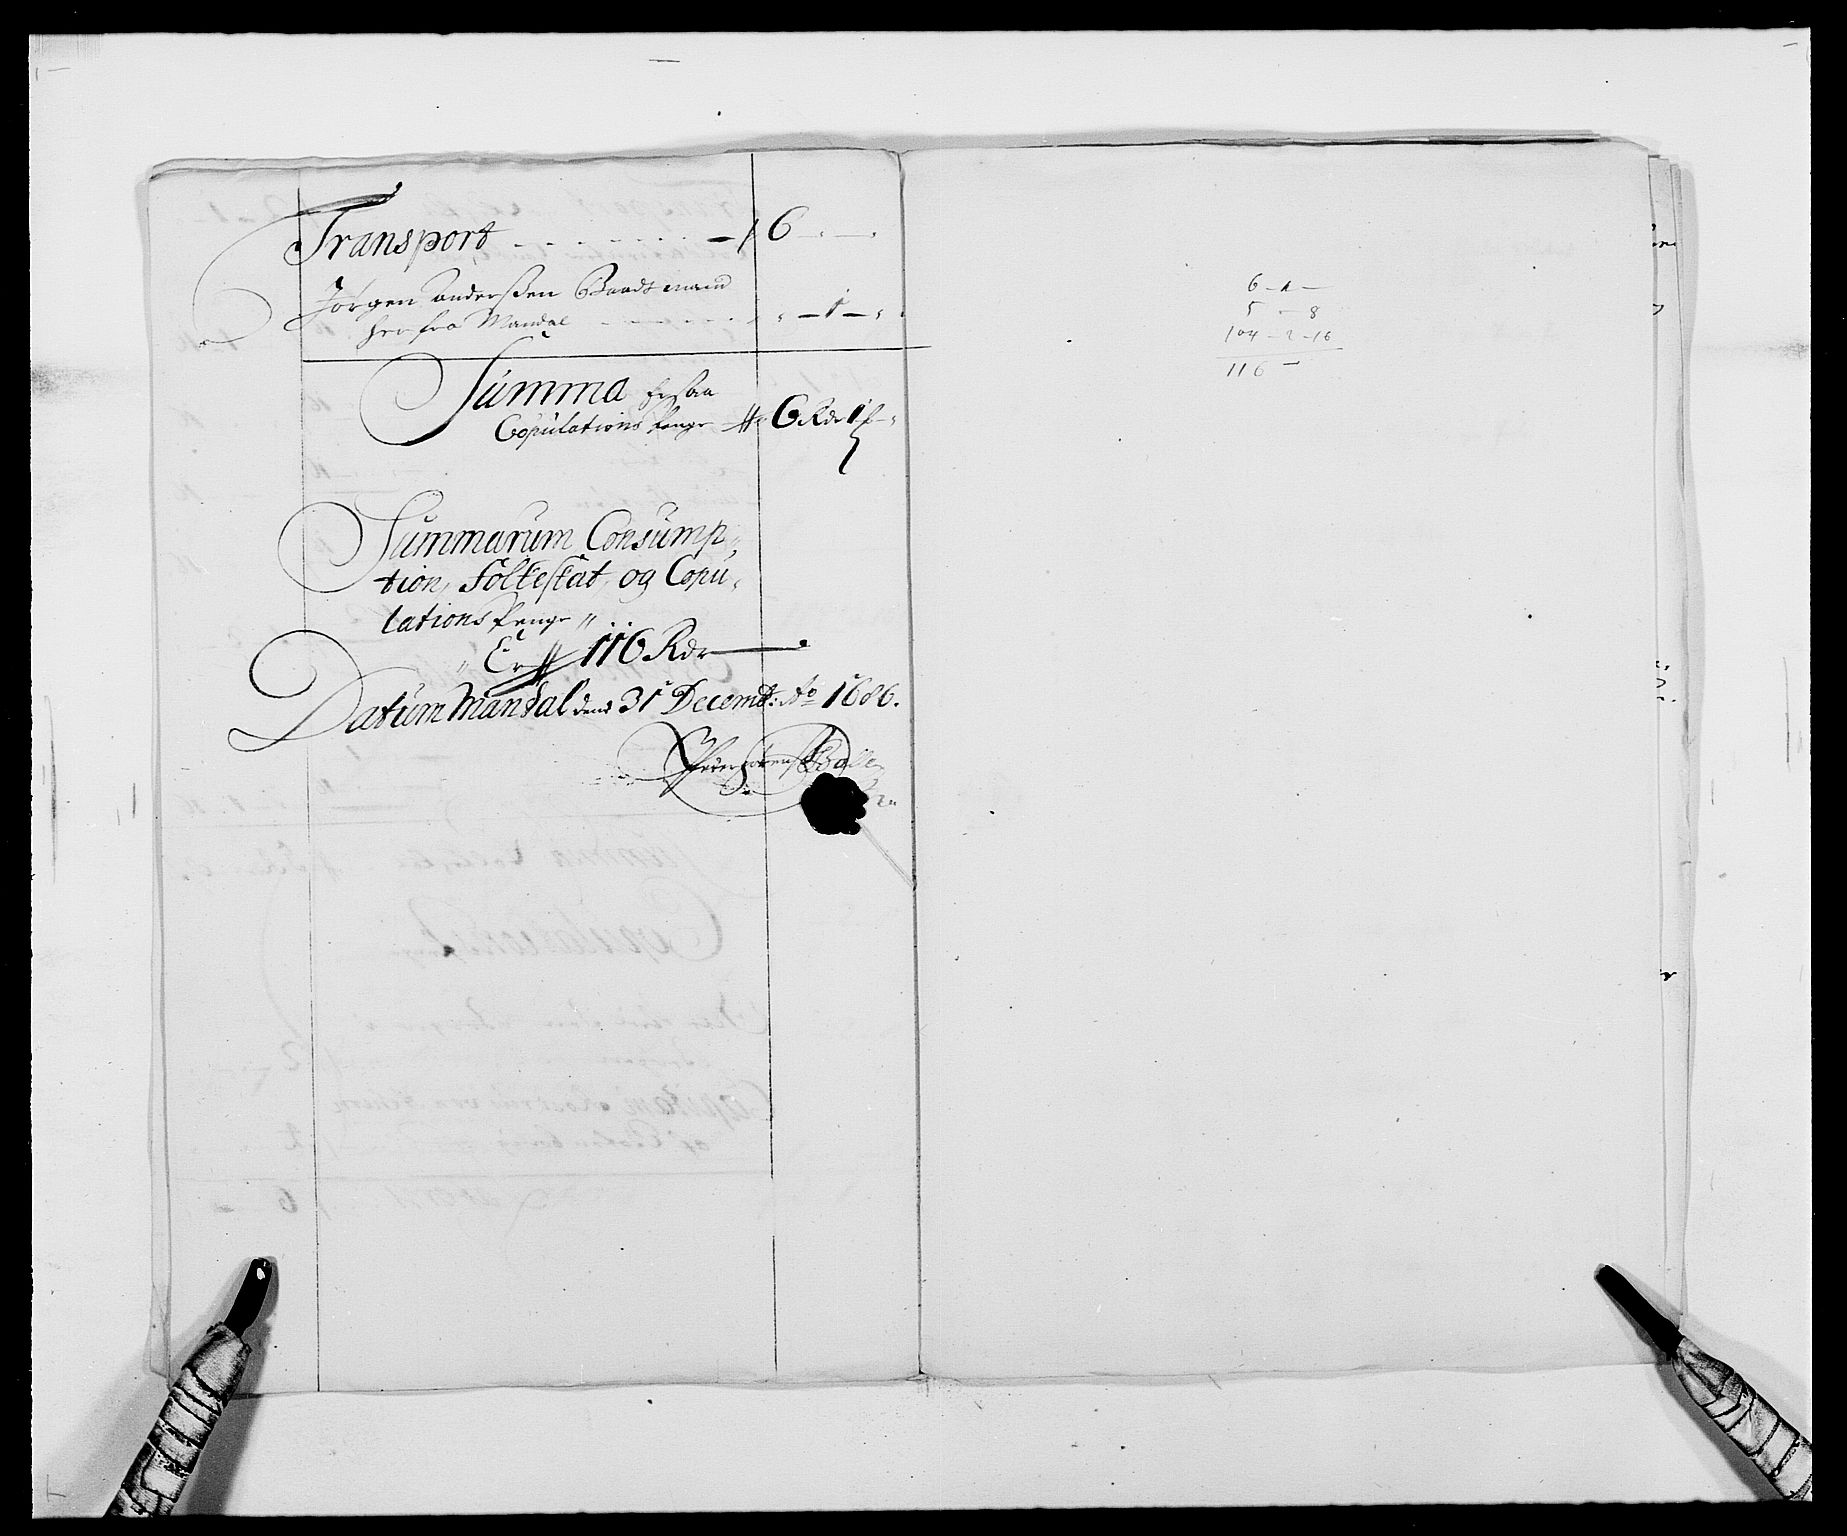 Transport - - - - - - - - 6 - " - "
Jørgen Anderßen Baadtmand
her fra Mandal - - - - - - " - 1 - "
Summa
Copulations Penge - 6 Rdr 1
Summarum Consump-
tion, Folkeskat, og Copu-
lations Penge "
" Er 116 Rdr
Datum Mandal dend 31 Decemb: Ao 1686.
6 - 1 -
5 - - 8
104 - 2 - 16
116 -